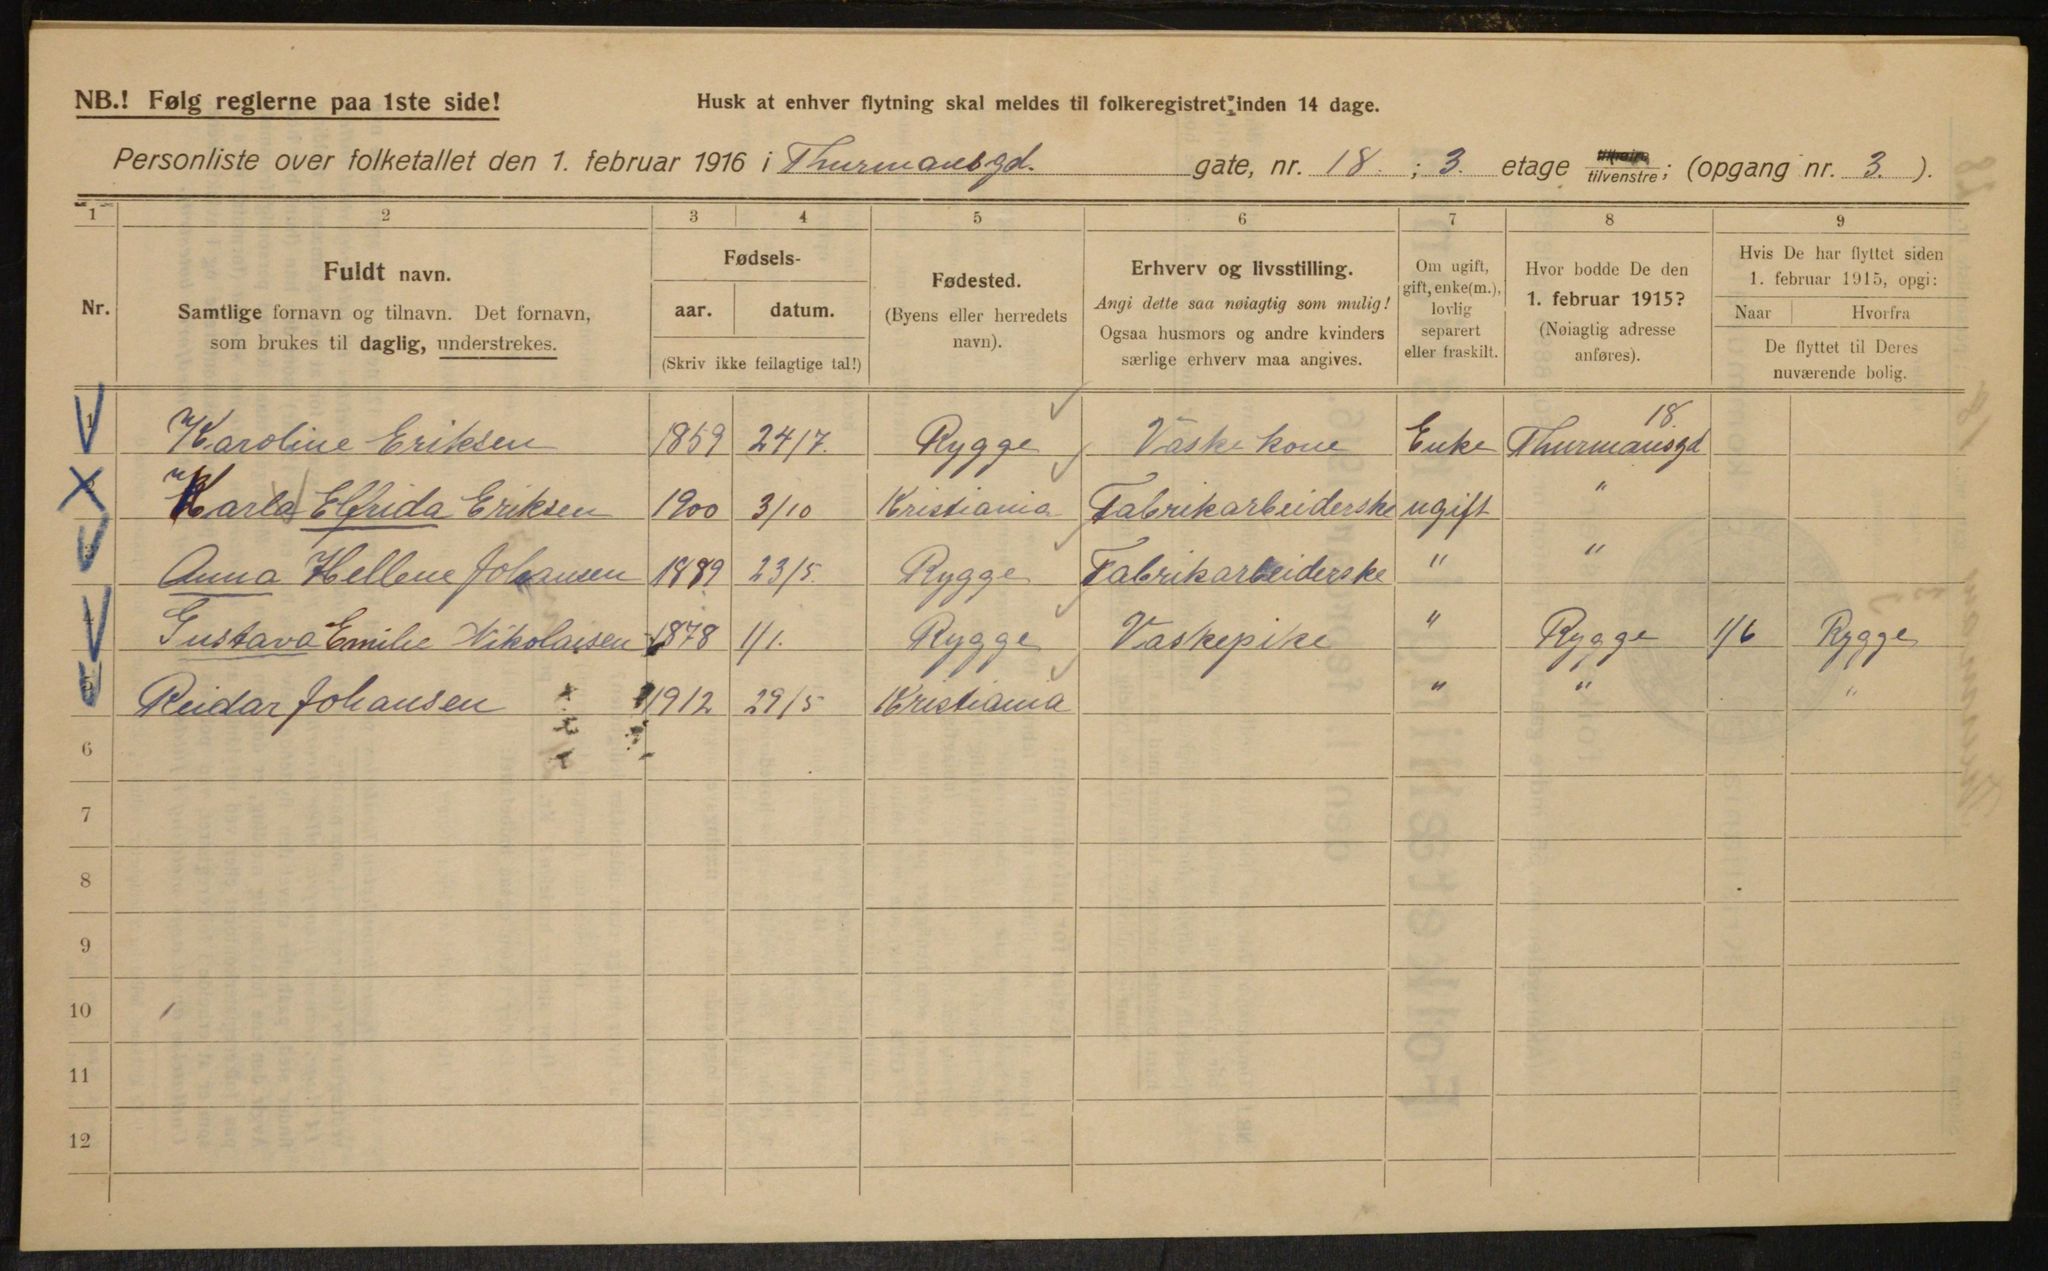 NB.! Følg reglerne paa 1ste side!
Husk at enhver flytning skal meldes til folkeregistret inden 14 dage.
Personliste over folketallet den 1. februar 1916 i Thurmansgd. gate, nr. 18. ; 3. etage tilvenstre; (opgang nr. 3. ).
1 2 3 4 5 6 7 8 9
Nr.
Fuldt navn.
Samtlige fornavn og tilnavn. Det fornavn,
som brukes til daglig, understrekes.
Fødsels-
aar. datum.
(Skriv ikke feilagtige tal!)
Fødested.
(Byens eller herredets
navn).
Erhverv og livsstilling.
Angi dette saa nøiagtig som mulig!
Ogsaa husmors og andre kvinders
særlige erhverv maa angives.
Om ugift,
gift, enke(m.),
lovlig
separert
eller fraskilt.
Hvor bodde De den
1. februar 1915?
(Nøiagtig adresse
anføres).
Hvis De har flyttet siden
1. februar 1915, opgi:
Naar Hvorfra
De flyttet til Deres
nuværende bolig.
1 Karoline Eriksen 1859 24/7. Rygge Vaskekone Enke Thurmansgd 18.
2 Karla Elfrida Eriksen 1900 3/10 Kristiania Fabrikarbeiderske ugift "
3 Anna Hellene Johansen 1889 23/5. Rygge Fabrikarbeiderske " "
4 Gustava Emilie Nikolaisen 1878 1/1. Rygge Vaskepike " Rygge 1/6 Rygge
5 Reidar Johansen 1912 29/5 Kristiania " " "
6
7
8
9
10
11
12